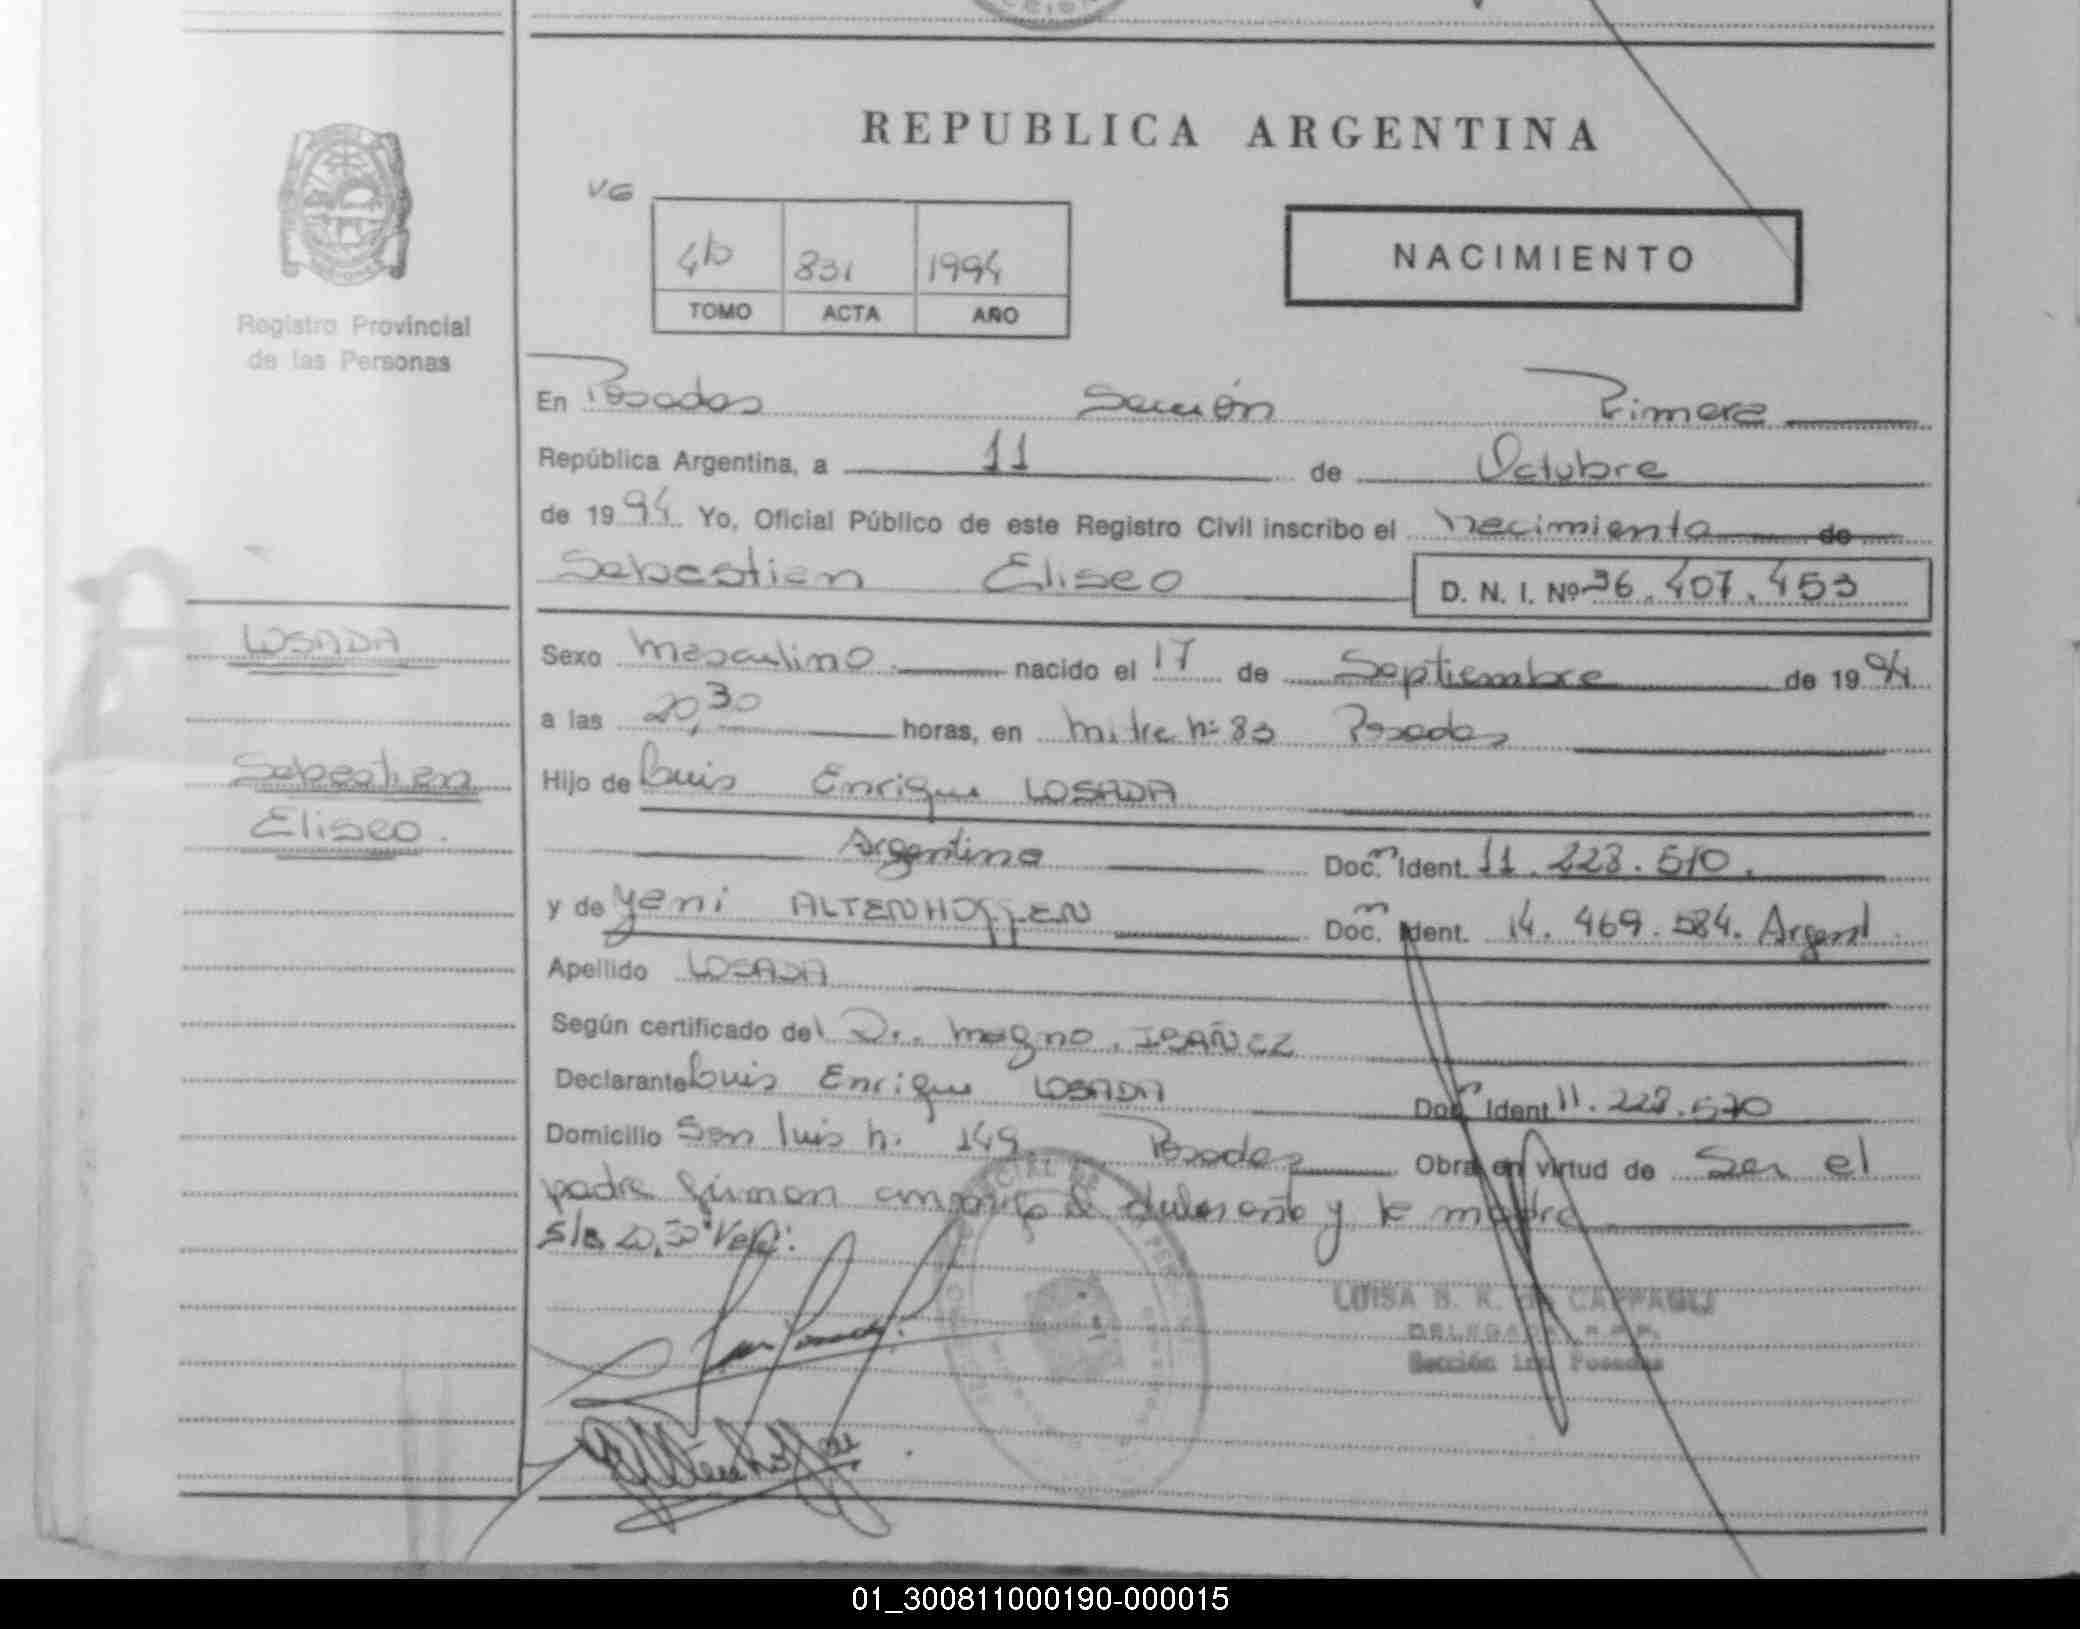 REPUBLICA ARGENTINA
VG
831 1994
TOMO ACTA AÑO
NACIMIENTO
Registro Provincial
de las Personas
En Posadas Sección Primera
República Argentina, a 11 de Octubre
de 1994 Yo, Oficial Público de este Registro Civil inscribo el nacimiento de
Sebastian Eliseo D. N. I. Nº 36.407.453
LOSADA
Sebastian
Eliseo.
Sexo masculino nacido el 17 de Septiembre de 1994
a las 20,30 horas, en mitre nº 83 Posadas
Hijo de Luis Enrique LOSADA
Argentino Doc. Ident. 11.228.570.
y de Yeni ALTENHOFFEN Doc. Ident. 14.469.584. Argent.
Apellido LOSADA
Según certificado del Dr. Magno. IBAÑEZ
Declarante Luis Enrique LOSADA Doc. Ident 11.228.570
Domicilio San Luis n. 149 Posadas Obra en virtud de Ser el
padre firman y la madre
S/B 20,30 Vale:
LUISA B. R. de CAPPAGLI
DELEGADA R.P.P.
Sección 1ra Posadas
01_300811000190-000015